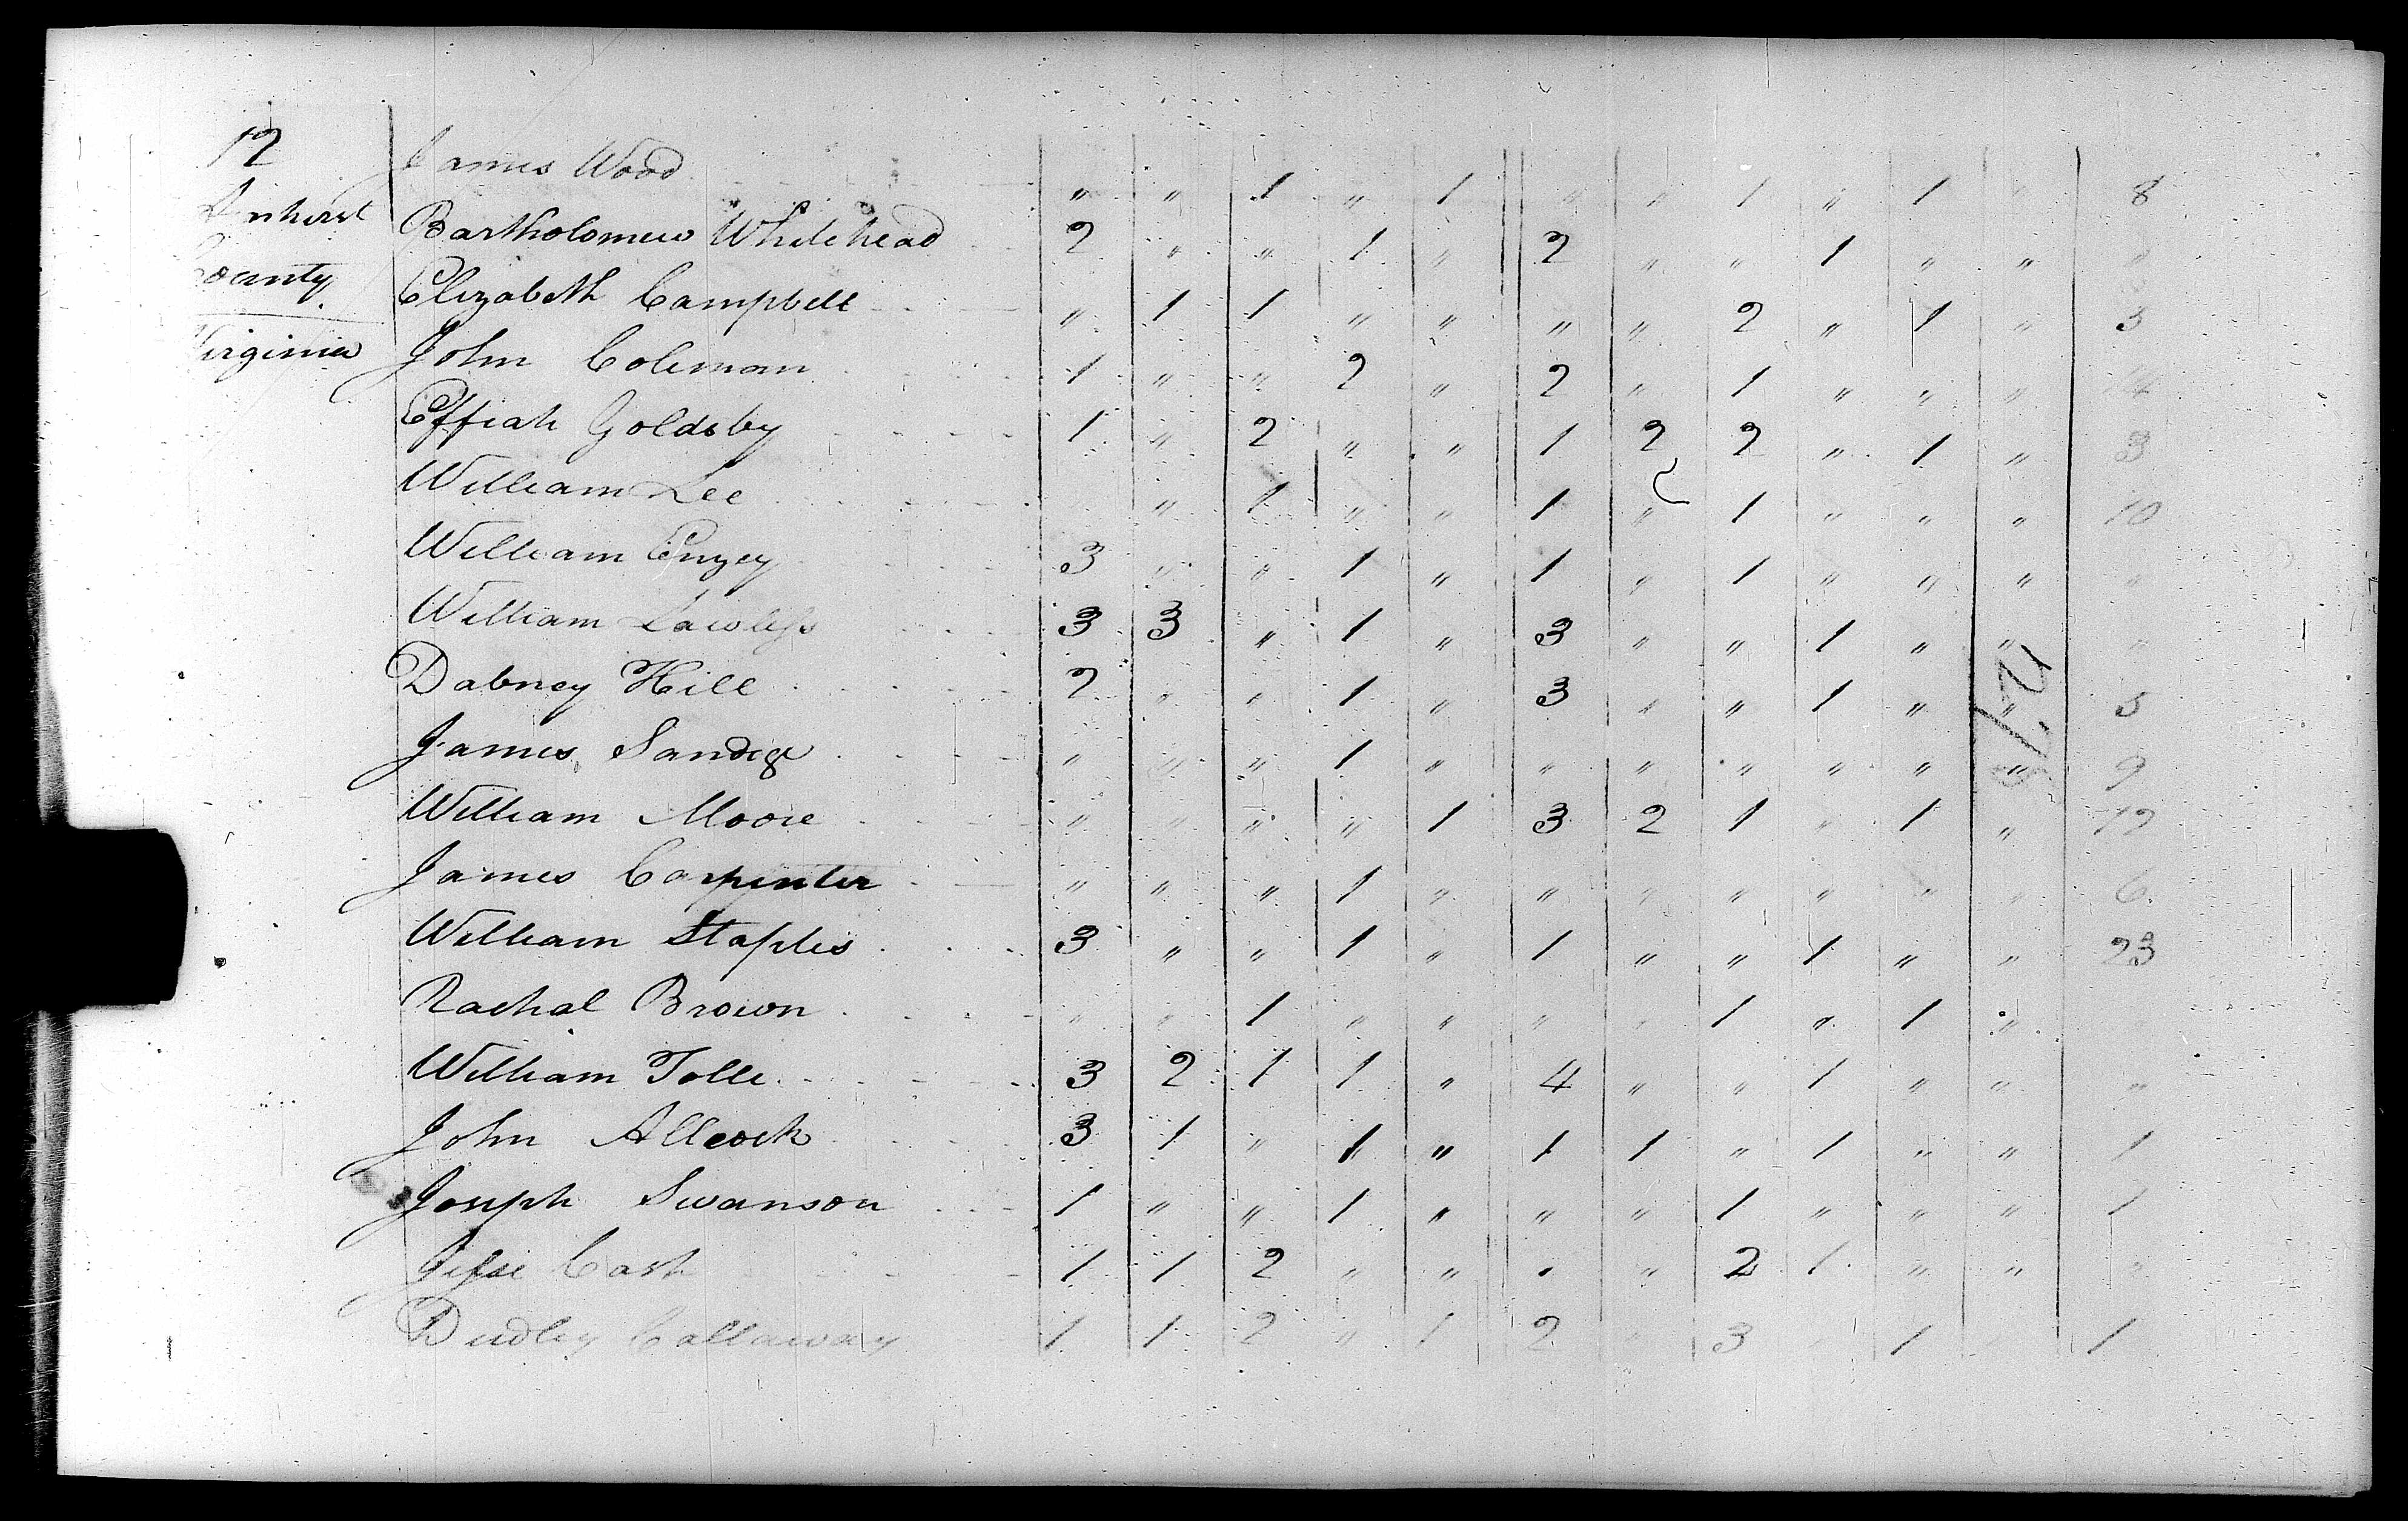 12
Amherst
County
Virginia
James Wood " " 1 " 1 " " 1 " 1 " 8
Bartholomew Whitehead 2 " " 1 " 2 " " 1 " " "
Elizabeth Campbell " 1 1 " " " " 2 " 1 " 3
John Coleman 1 " " 2 " 2 " 1 " " " 14
Effiah Goldsby 1 " 2 " " 1 2 2 " 1 " 3
William Lee " 1 " " 1 " 1 " " " 10
William 3 " " 1 " 1 " 1 " " " "
William Lawless 3 3 " 1 " 3 " " 1 " " "
Dabney Hill 2 " " 1 " 3 " " 1 " " 5
James Sandige " " " 1 " " " " " " " 9
William Moore " " " " 1 3 2 1 " 1 " 12
James Carpenter " " " 1 " " " " " " " 6
William Staples 3 " " 1 " 1 " " 1 " " 23
Rachal Brown " " 1 " " " " 1 " 1 "
William Tolle 3 2 1 1 " 4 " " 1 " " "
John Allcock 3 1 " 1 " 1 1 " 1 " " 1
Joseph Swanson 1 " " 1 " " " 1 " " " 1
Jesse Cash 1 1 2 " " " " 2 1 " " "
Dudley Callaway 1 1 2 " 1 2 " 3 1 1